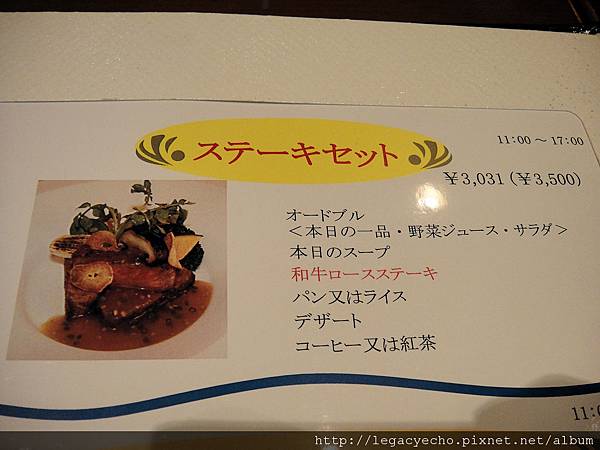 ステーキセット
11:00 ～ 17:00
￥3,031 (￥3,500)
オードブル
＜本日の一品・野菜ジュース・サラダ＞
本日のスープ
和牛ロースステーキ
パン又はライス
デザート
コーヒー又は紅茶
11:
http://legacyecho.pixnet.net/album